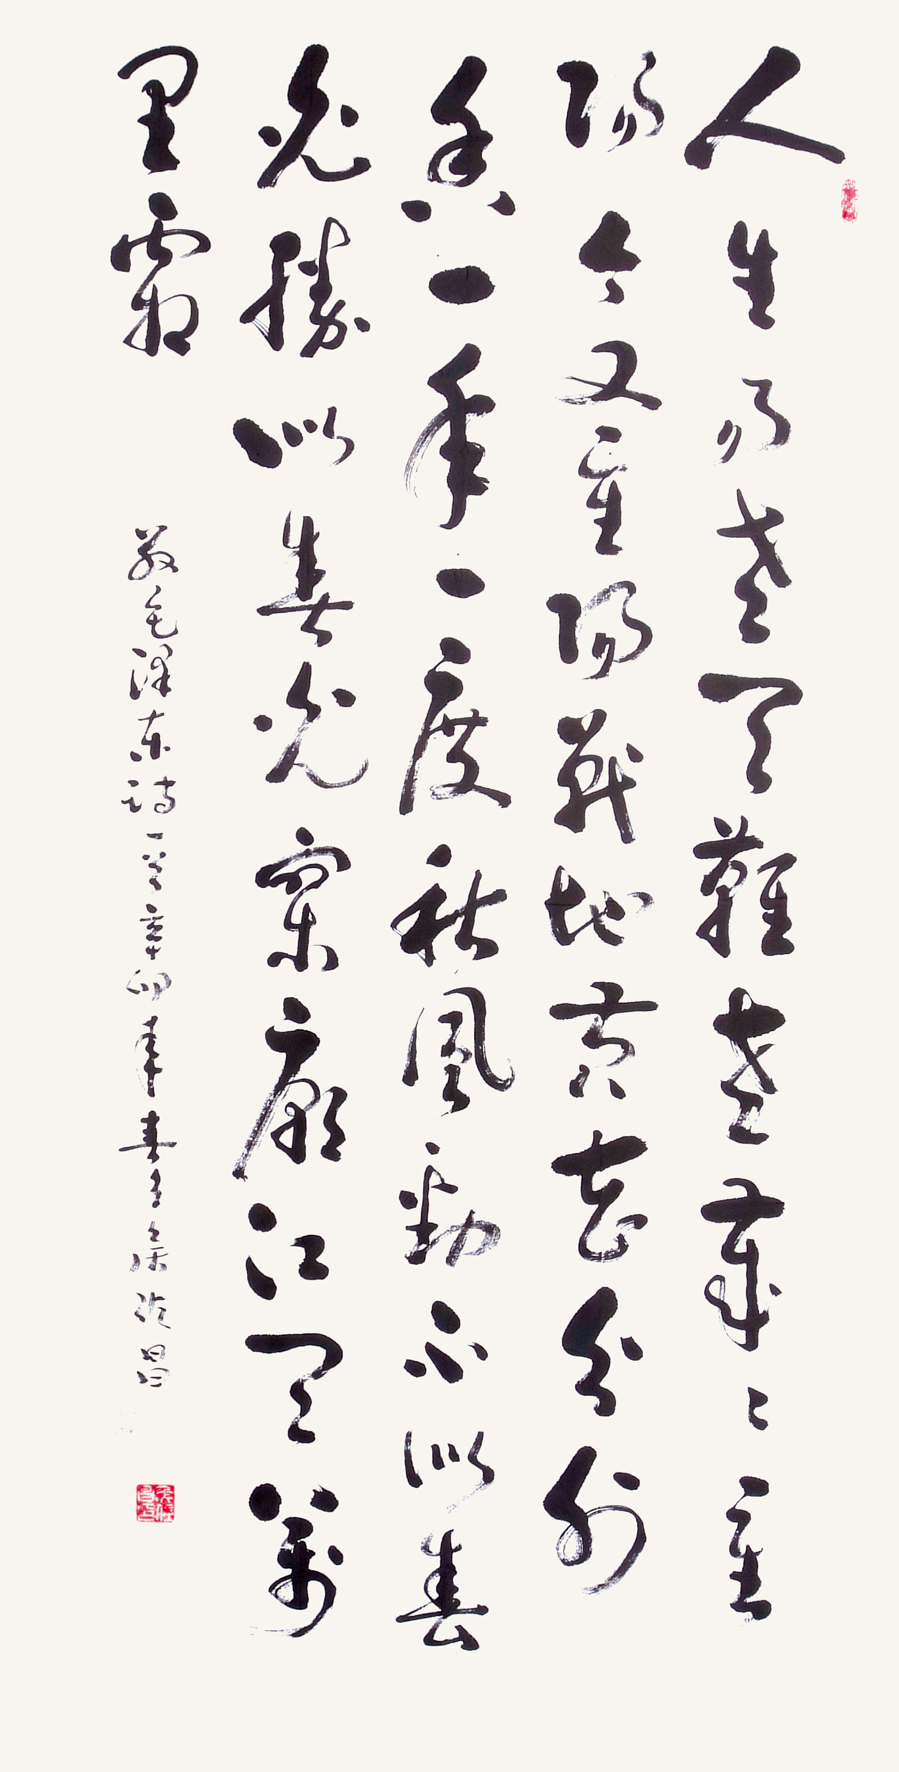 人生易老天難老歲々重
陽今又重陽戰地黃花分外
香一年一度秋風勁不似春
光勝似春光寥廓江天萬
里霜
毛澤東詩一首辛卯年春 昌